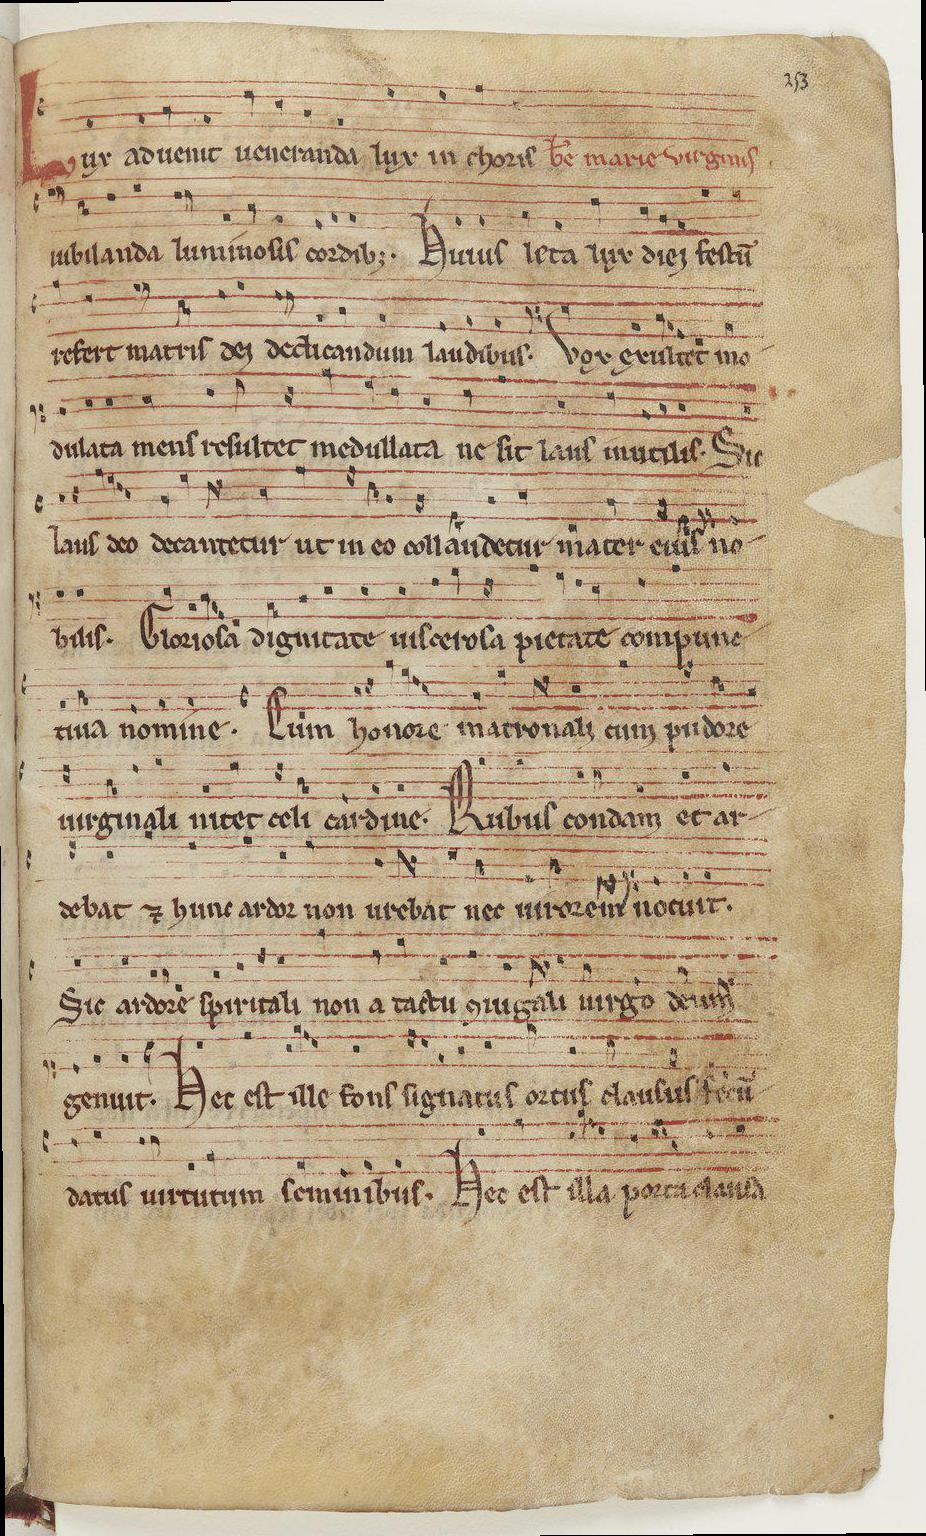 253
Lux aduenit ueneranda lux in choris b̅e marie virginis
iubilanda luminosis cordib;. Huius leta lux diej festū
refert matris dej dedicandum laudibus. Vox exultet mo-
dulata mens resultet medullata ne sit laus inutilis. Sic
laus deo decantetur ut in eo collaudetur mater eius no-
bilis. Gloriosa dignitate uiscerosa pietate compunc-
tiua nomine. Cum honore matronalj cum pudore
uirginali nitet celi cardine. Rubus condam et ar-
debat ⁊ hunc ardor non urebat nec uirorem nocuit.
Sic ardore spiritali non a tactu ꝯiugali uirgo deum
genuit. Hec est ille fons signatus ortus clausus fecū-
datus uirtutum seminibus. Hec est illa porta clausa